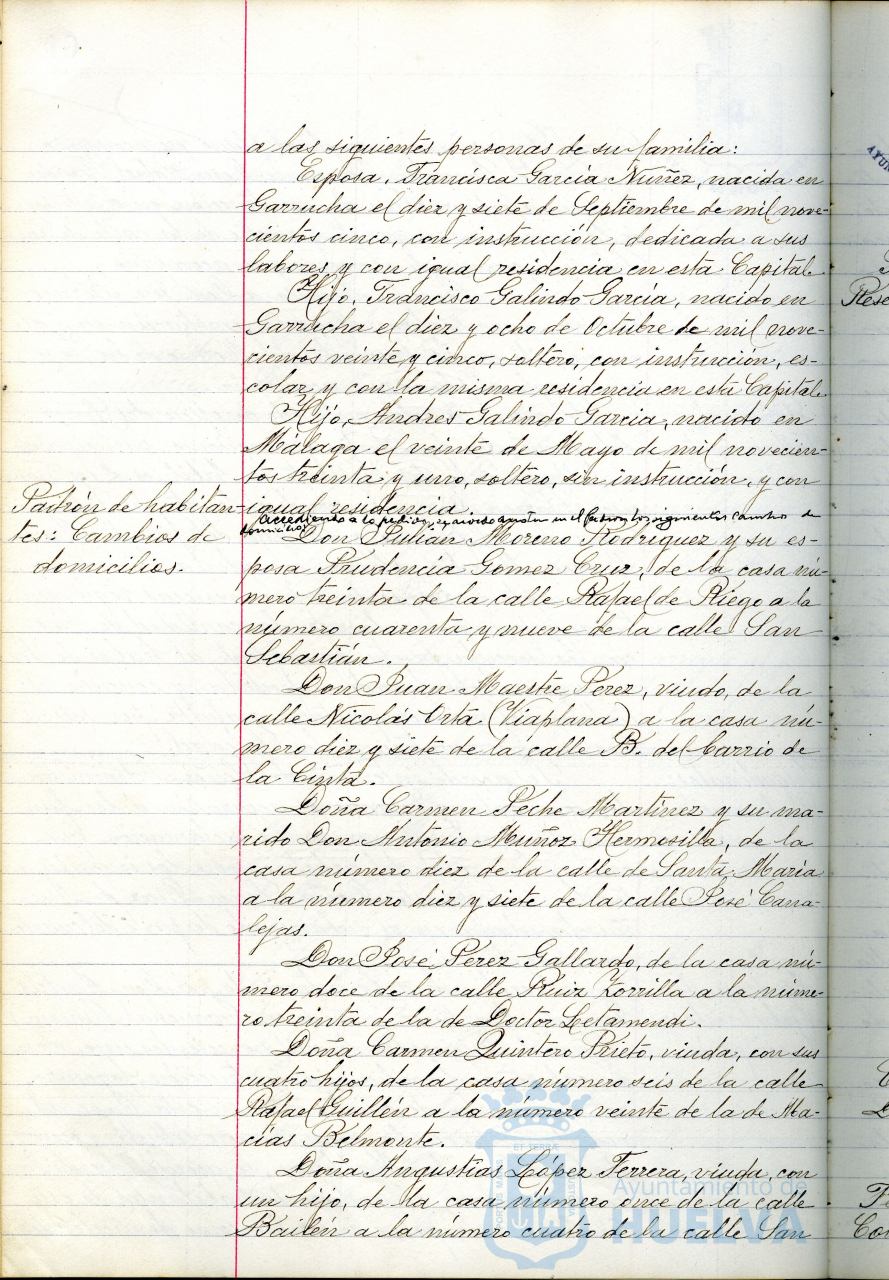 a las siguientes personas de su familia:
Esposa. Francisca García Nuñez, nacida en
Garrucha el diez y siete de Septiembre de mil nove-
cientos cinco, con instrucción, dedicada a sus
labores y con igual residencia en esta Capital.
Hijo. Francisco Galindo García, nacido en
Garrucha el diez y ocho de Octubre de mil nove-
cientos veinte y cinco, soltero, con instrucción, es-
colar y con la misma residencia en esta Capital.
Hijo, Andres Galindo Garcia, nacido en
Málaga el veinte de Mayo de mil novecien-
tos treinta y uno, soltero, sin instrucción, y con
igual residencia.
Padrón de habitan-
tes: Cambios de
domicilios.
Accediendo a lo pedido, se acordó anotar en el Padron los siguientes cambios de
domicilios
Don Julián Moreno Rodriguez y su es-
posa Prudencia Gomez Cruz, de la casa nú-
mero treinta de la calle Rafael de Riego a la
número cuarenta y nueve de la calle San
Sebastián.
Don Juan Maestre Perez, viudo, de la
calle Nicolás Orta (Viaplana) a la casa nú-
mero diez y siete de la calle B. del barrio de
la Cinta.
Doña Carmen Peche Martínez y su ma-
rido Don Antonio Muñoz Hermosilla, de la
casa número diez de la calle de Santa María
a la número diez y siete de la calle José Cana-
lejas.
Don José Perez Gallardo, de la casa nú-
mero doce de la calle Ruiz Zorrilla a la núme-
ro treinta de la de Doctor Letamendi.
Doña Carmen Quintero Prieto, viuda, con sus
cuatro hijos, de la casa número seis de la calle
Rafael Guillén a la número veinte de la de Ma-
cías Belmonte.
Doña Angustias López Ferrera, viuda, con
un hijo, de la casa número once de la calle
Bailén a la número cuatro de la calle San
Ayuntamiento de
HUELVA